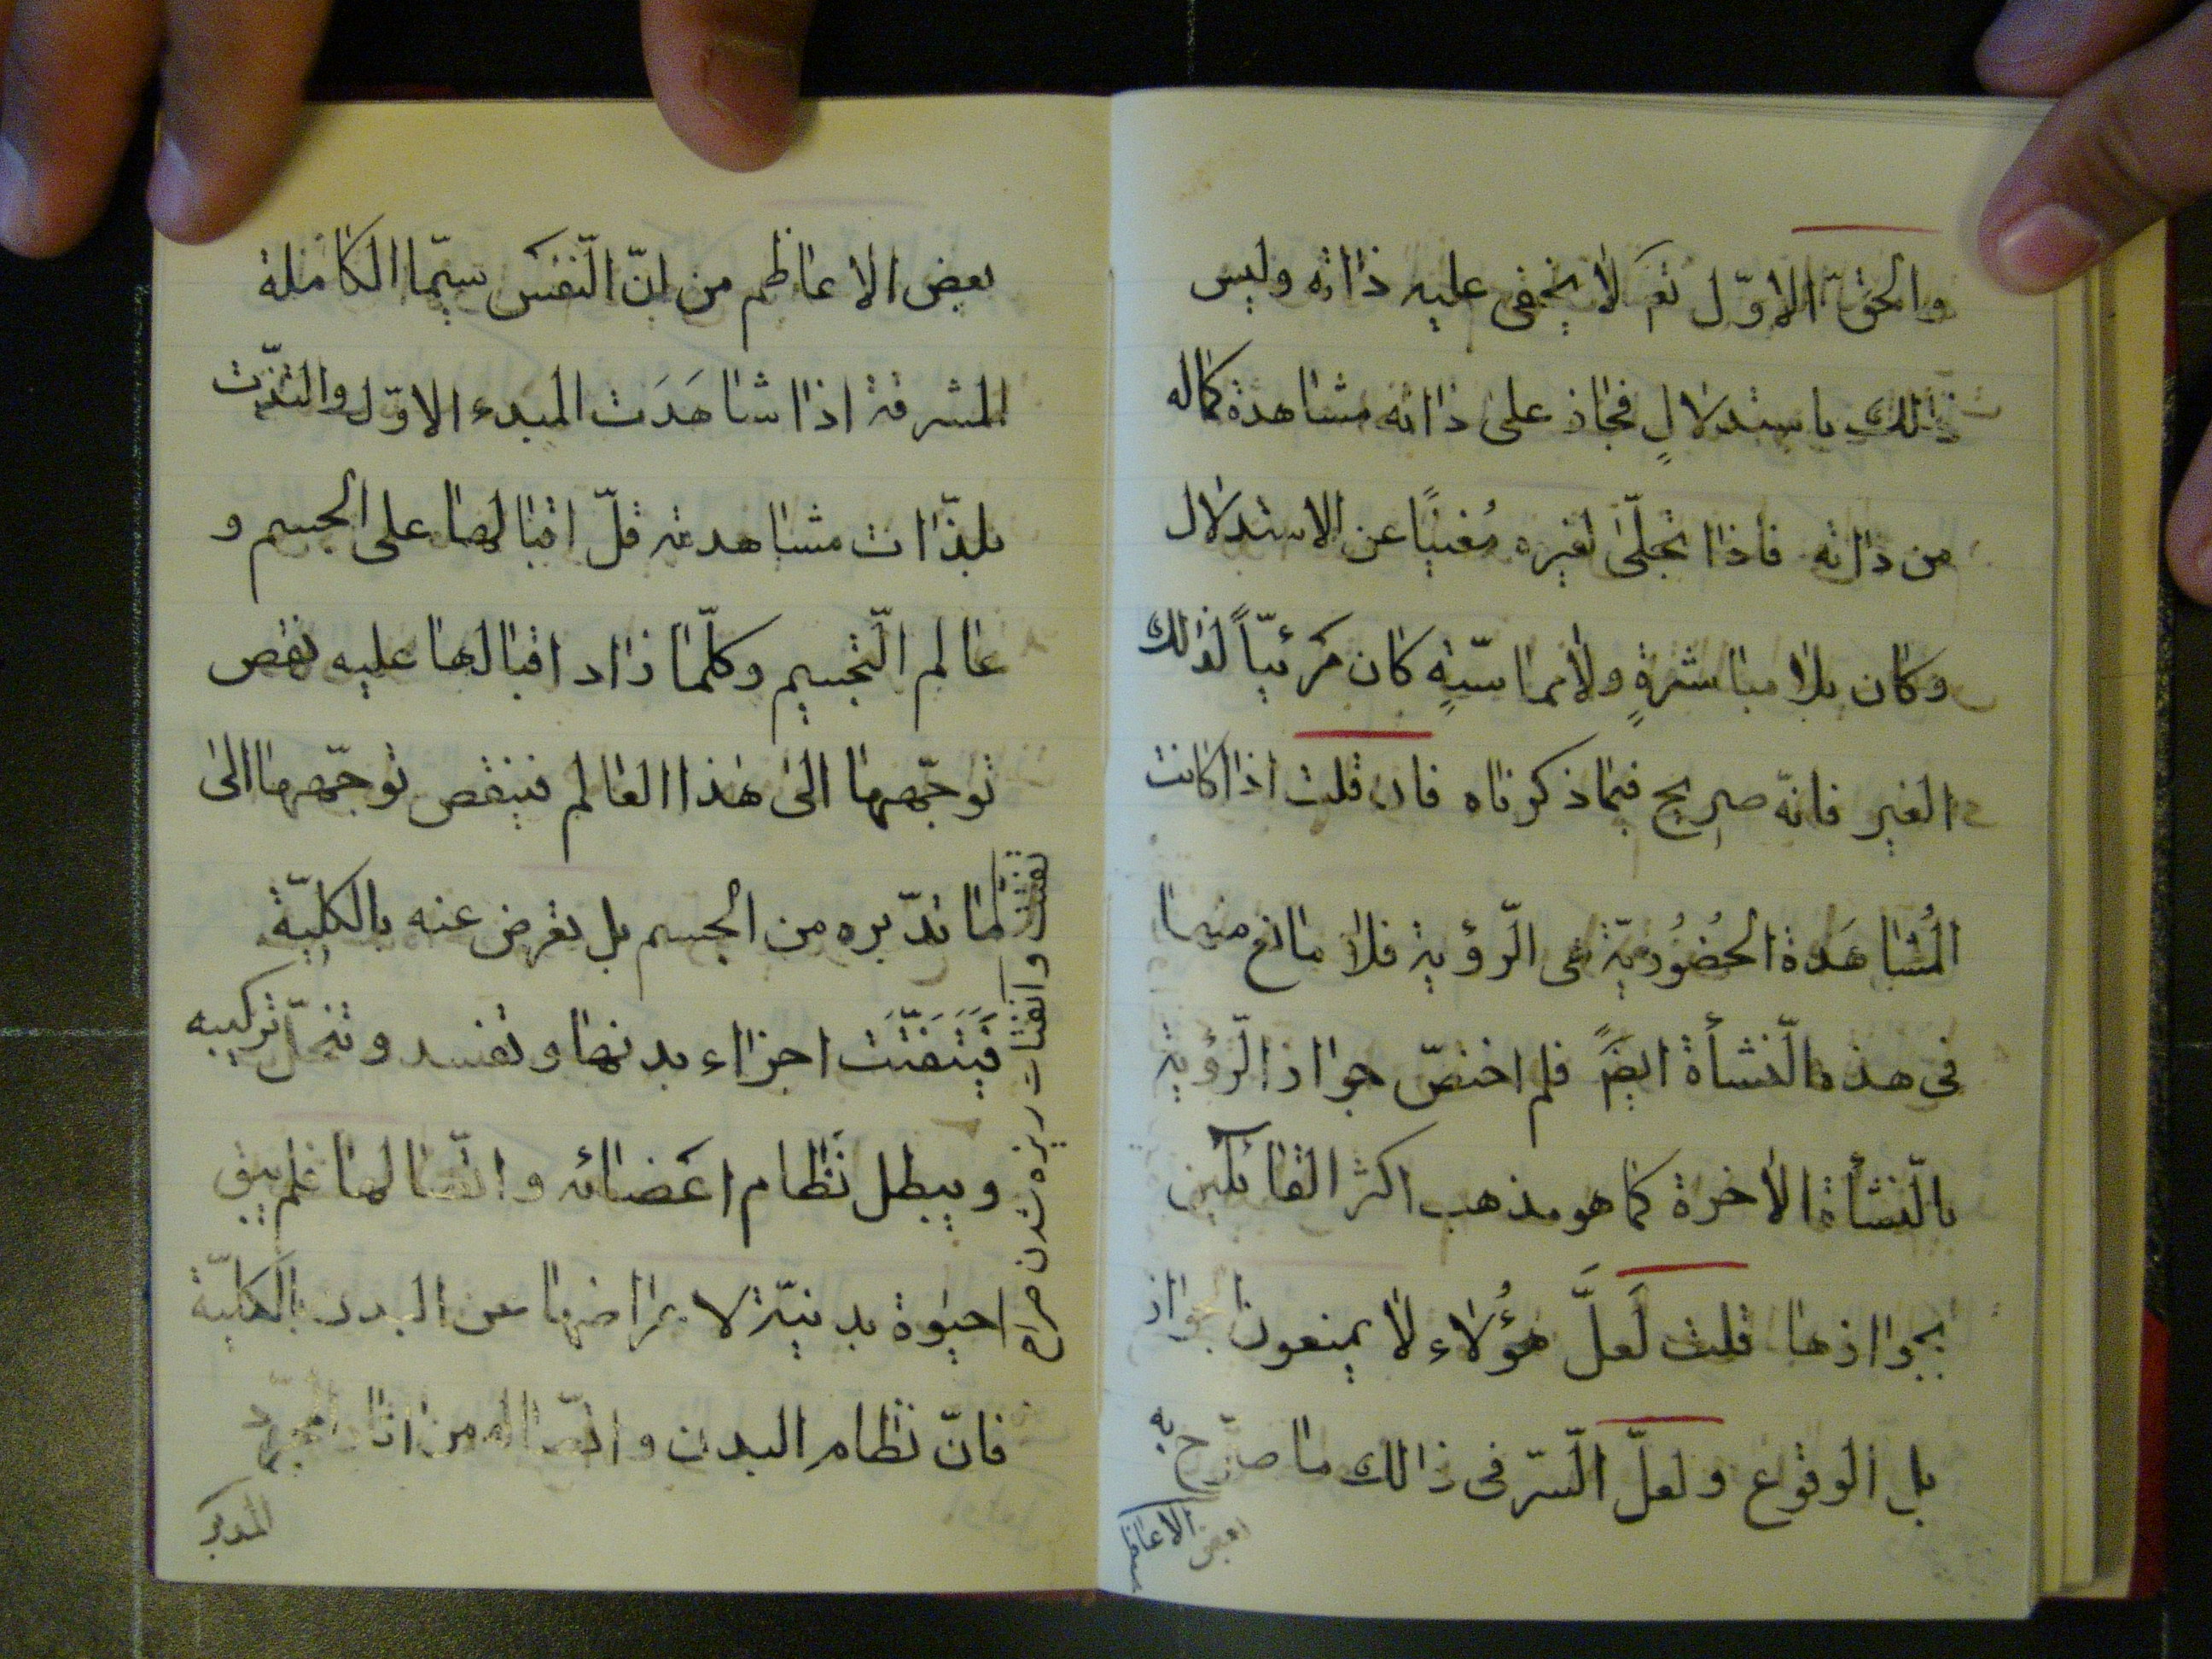 والحقّ الاوّل تع‍ لا يخفى عليه ذاته وليس
ذالك باستدلالٍ فجاز على ذاته مشاهدة كماله
من ذاته فاذا تجلّى لغيره مُغنيًا عن الاستدلال
وكان بلا مباشرةٍ ولا مماسّةٍ كان مرئيّاً لذالك
الغير فانّه صريح فيما ذكرناه فان قلت اذا كانت
المُشاهَدة الحضُوُريّة هى الّرؤية فلا مانع منها
فى هذه الّنشأة ايضً فلم اختصّ جواز الّرؤية
بالّنشأة الآخرة كما هو مذهب اكثر القائلين
بجوازها قلت لَعلَّ هؤُلاء لا يمنعون الجواز
بل الوقوع ولعلّ الّسرّ فى ذالك ما صرّح به
بعض الاعا
بعض الاعاظم من انّ الّنفس سيّما الكاملة
المشرقة اذا شاهَدَت المبدء الاوّل والتذّت
بلذّات مشاهدته قلّ اقبالها على الجسم و
عالم الّتجسيم وكلّما زاد اقبالها عليه نقص
توجّهها الى هذا العالم فينقص توجّهها الى
ما تدّبره من الجسم بل تعرض عنه بالكليّة
فَيَتَفَتَّت اجزاء بدنها و تفسد و تنحلّ تركيبه
ويبطل نَظام اعَضائه و اتّصالها فلم يبق
حيوة بدنيّة لا عراضها عن البدن بالكليّة
فانّ نظام البدن و اتّصاله من اثار
المدبر
تفتت وانفتات ريزه شدن صراح